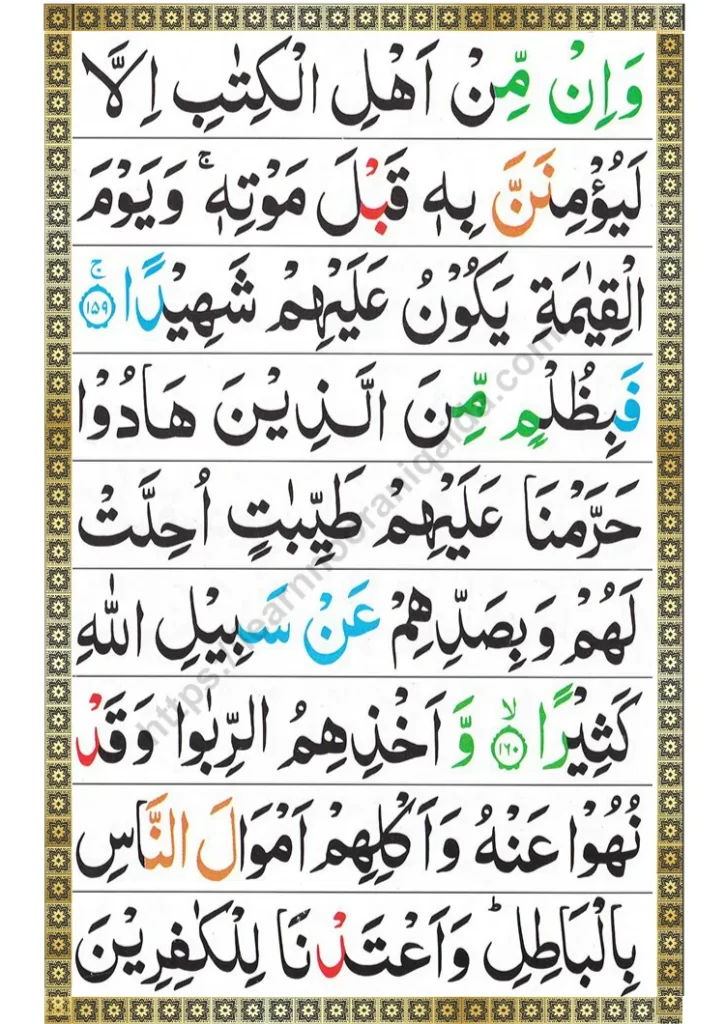 وَاِنْ مِّنْ اَهْلِ الْكِتٰبِ اِلَّا
لَيُؤْمِنَنَّ بِهٖ قَبْلَ مَوْتِهٖ ۚ وَيَوْمَ
الْقِيٰمَةِ يَكُوْنُ عَلَيْهِمْ شَهِيْدًا ۚ ﴿۱۵۹﴾
فَبِظُلْمٍ مِّنَ الَّذِيْنَ هَادُوْا
حَرَّمْنَا عَلَيْهِمْ طَيِّبٰتٍ اُحِلَّتْ
لَهُمْ وَبِصَدِّهِمْ عَنْ سَبِيْلِ اللّٰهِ
كَثِيْرًا ۙ ﴿۱۶۰﴾ وَّ اَخْذِهِمُ الرِّبٰوا وَقَدْ
نُهُوْا عَنْهُ وَاَكْلِهِمْ اَمْوَالَ النَّاسِ
بِالْبَاطِلِ ؕ وَاَعْتَدْنَا لِلْكٰفِرِيْنَ
https://learnnooraniqaida.com/